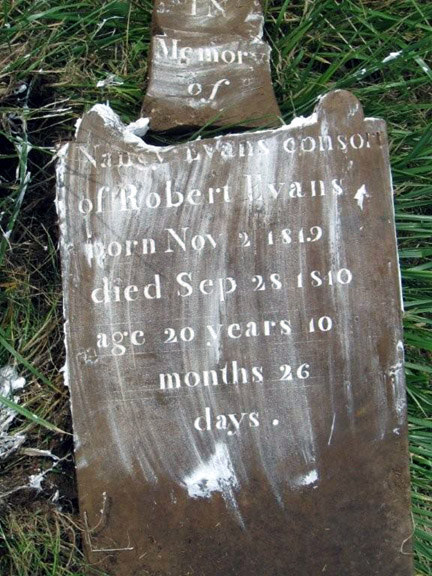 IN
Memory
of
Nancy Evans consort
of Robert Evans
born Nov 2 1819
died Sep 28 1840
age 20 years 10
months 26
days.